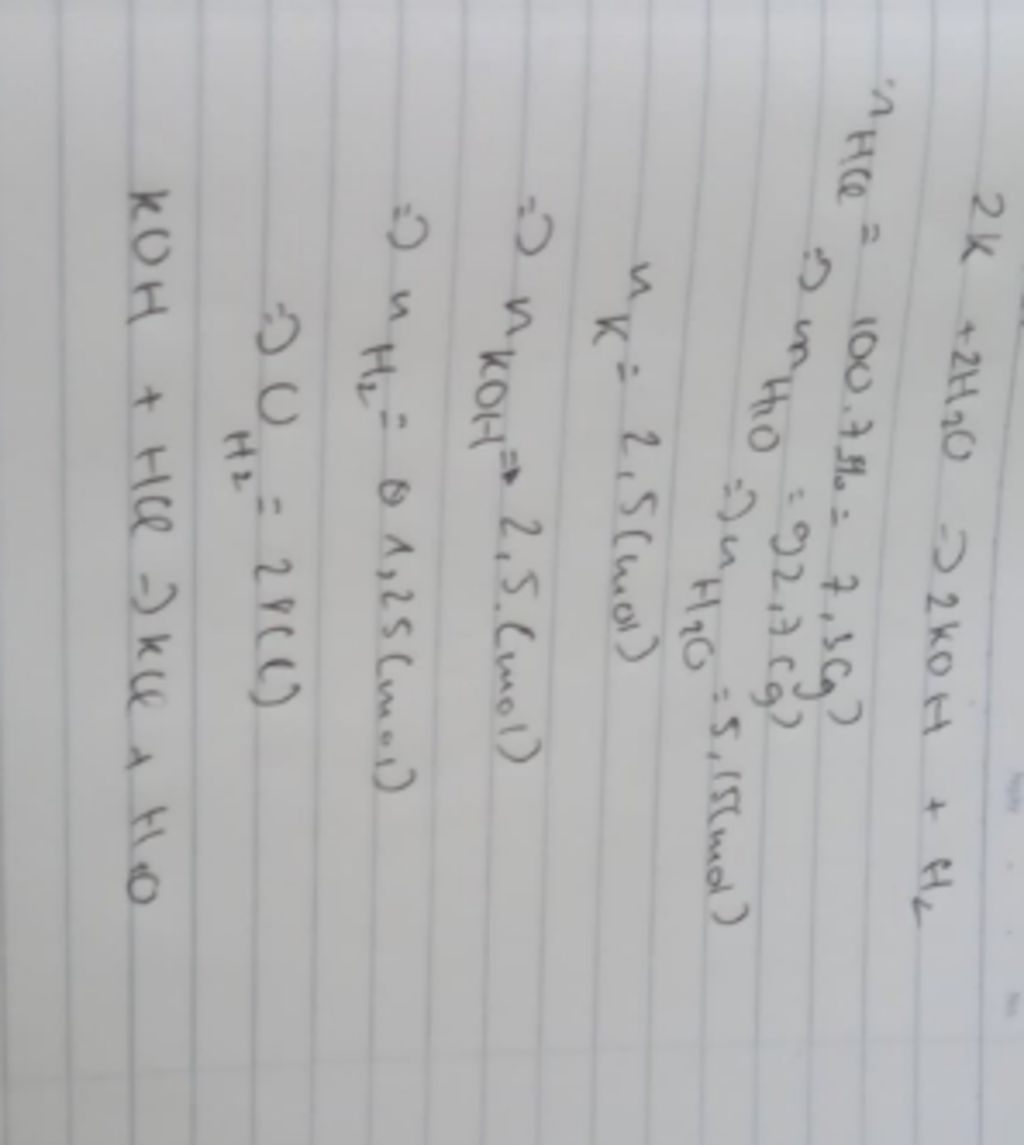 2K + 2H₂O => 2KOH + H₂
mHCl = 100.7,3% = 7,3(g)
=> mH₂O = 92,7(g)
=> nH₂O = 5,15(mol)
nK = 2,5(mol)
=> nKOH = 2,5(mol)
=> nH₂ = 1,25(mol)
=> VH₂ = 28(l)
KOH + HCl => KCl + H₂O